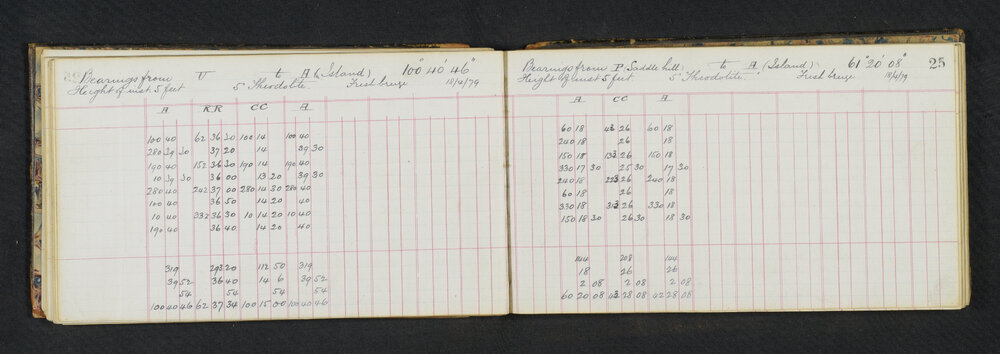 Bearings from U to A (Island) 100° 40' 46"
Height of inst 5 feet 5" Theodolite. Fresh breeze 18/4/79
A KR CC A
100 40 62 36 30 100 14 100 40
280 39 30 37 20 14 39 30
190 40 152 36 30 190 14 190 40
10 39 30 36 00 13 20 39 30
280 40 242 37 00 280 14 30 280 40
100 40 36 50 14 20 40
10 40 332 36 30 10 14 20 10 40
190 40 36 40 14 20 40
319 293 20 112 50 319
39 52 36 40 14 6 39 52
54 54 54 54
100 40 46 62 37 34 100 15 00 100 40 46
Bearings from P (Saddle hill) to A (Island) 61° 20' 08" 25
Height of inst 5 feet 5" Theodolite. Fresh breeze 18/4/79
A CC A
60 18 43 26 60 18
240 18 26 18
150 18 133 26 150 18
330 17 30 25 30 17 30
240 18 223 26 240 18
60 18 26 18
330 18 313 26 330 18
150 18 30 26 30 18 30
144 208 144
18 26 26
2 08 2 08 2 08
60 20 08 43 28 08 28 08